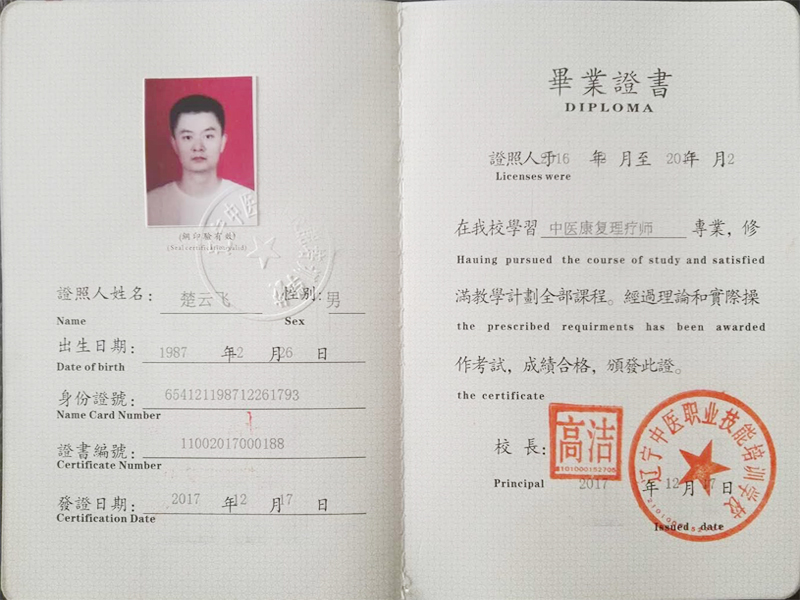 (鋼印驗有效)
(Seal certificate valid)
證照人姓名: 楚云飞 性别: 男
Name Sex
出生日期: 1987 年 2 月 26 日
Date of birth
身份證號: 654121198712261793
Name Card Number
證書編號: 11002017000188
Certificate Number
發證日期: 2017 年 12 月 17 日
Certification Date
畢業證書
DIPLOMA
證照人于 16 年 月至 20 年 月 2
Licenses were
在我校學習 中医康复理疗师 專業, 修
Hauing pursued the course of study and satisfied
滿教學計劃全部課程。經過理論和實際操
the prescribed requirments has been awarded
作考試, 成績合格, 頒發此證。
the certificate
校長: 高洁
Principal
2017 年 12 月 17 日
Issued date
辽宁中医职业技能培训学校